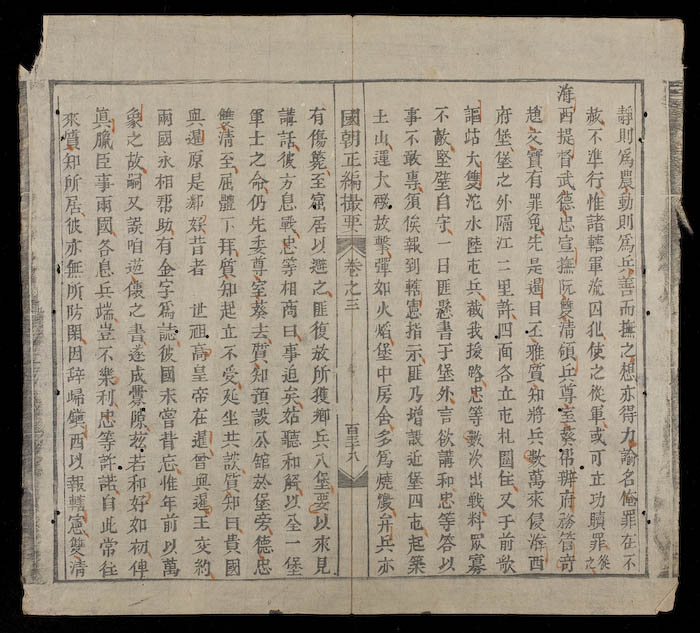 靜則爲農動則爲兵善而撫之想亦得力諭名俺罪在不
赦不準行惟諸轄軍流囚犯使之從軍或可立功贖罪從之
海西提督武德忠宣撫阮雙清領兵尊室葵帮辦府務管奇
趙文實有罪免先是暹目丕雅質知將兵數萬來侵海西
府堡堡之外隔江二里許四面各立屯札圍住又于前歌
謳帖大雙沱水陸屯兵截我援路忠等數次出戰料眾寡
不敵堅壁自守一日匪懸書于堡外言欲講和忠等答以
事不敢專須俟報到轄憲指示匪乃增設近堡四屯起築
土山運大礮故擊彈如火焰堡中房舍多爲燒燬弁兵亦
國朝正編撮要 卷之三 百三十八
有傷斃至窟居以避之匪復放所獲鄉兵入堡要以來見
講話彼方息戰忠等相商曰事迫矣姑聽和解以全一堡
軍士之命仍先委尊室葵去質知預設公舘於堡旁德忠
雙清至屈體下拜質知起立不受延坐共談質知曰貴國
與暹原是鄰好昔者 世祖高皇帝在暹曾與暹王交約
兩國永相帮助有金字爲誌彼國未嘗背忘惟年前以萬
象之故嗣又誤咱逆儴之書遂成釁隙茲若和好如初俾
眞臘臣事兩國各息兵端豈不樂利忠等許諾自此常往
來質知所居彼亦無所防閑因辞歸鎮西以報轄憲雙清